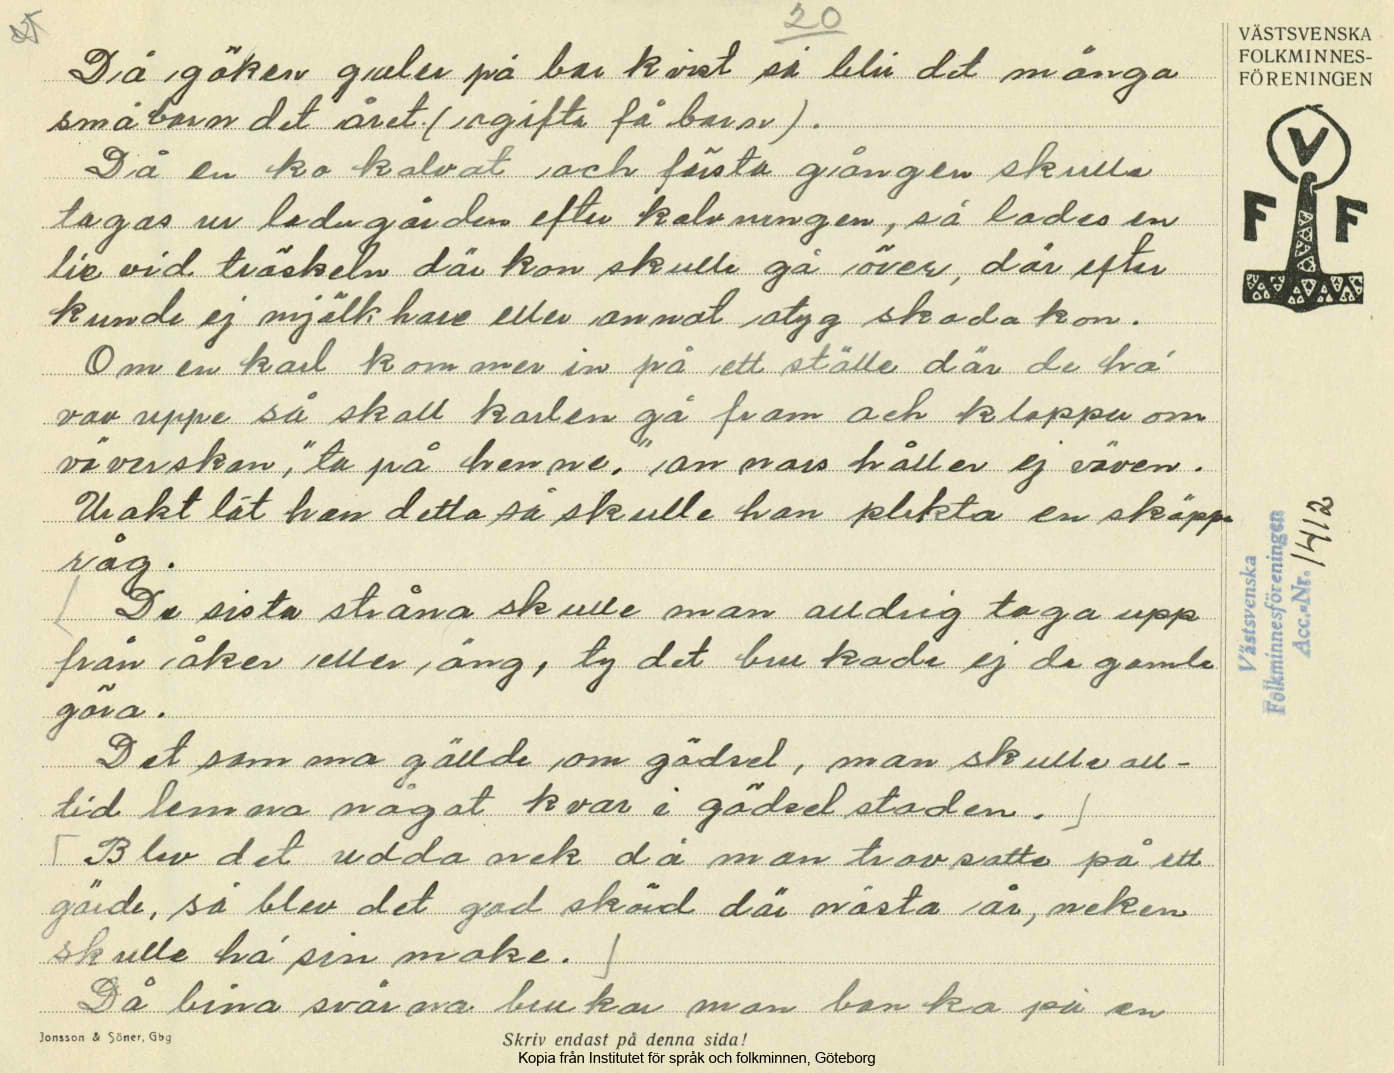 20
VÄSTSVENSKA
FOLKMINNES-
FÖRENINGEN
V
F F
Då göken galer på bar kvist så blir det många
små barn det året. (ogifta få barn).
Då en ko kalvat och första gången skulle
tagas ur ladugården efter kalvningen, så lades en
lie vid tröskeln där kon skulle gå över, där efter
kunde ej mjölkhare eller annat otyg skada kon.
Om en karl kommer in på ett ställe där de há
vav uppe så skall karlen gå fram och klappa om
väverskan, "ta på henne." annars håller ej väven.
Uraktlät han detta så skulle han plikta en skäppa
råg.
De sista stråna skulle man alldrig taga upp
från åker eller äng, ty det brukade ej de gamle
göra.
Det samma gällde om gödsel, man skulle all-
tid lemna något kvar i gödselstaden.
Blev det udda nek då man travsatte på ett
gärde, så blev det god skörd där nästa år, neken
skulle há sin make.
Då bina svärma brukar man banka på en
Västsvenska
Folkminnesföreningen
Acc.-Nr. 1412
Jonsson & Söner, Gbg
Skriv endast på denna sida!
Kopia från Institutet för språk och folkminnen, Göteborg